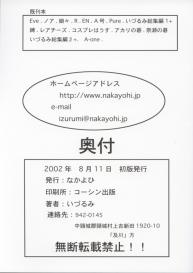 既刊本
Eve．ノア．姫々．R．EN．A号．Pure．いづるみ総集編1+
縛．レアチーズ．コスプレはうす．アカリの巻．奈瀬の巻
いづるみ総集編2+．A-one．
ホームページアドレス
http://www.nakayohi.jp
e-mail
izurumi@nakayohi.jp
奥付
2002年 8月11日 初版発行
発行：なかよひ
印刷所：コーシン出版
著者：いづるみ
連絡先：942-0145
中頸城郡頸城村上吉新田1920-10
「及川」方
無断転載禁止！！